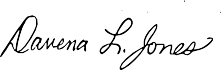 Davena L. Jones